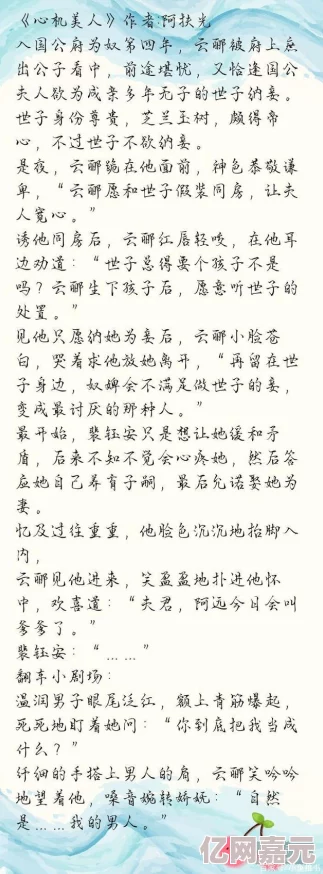 《心机美人》作者:阿扶光
入国公府为奴第四年，云郦被府上庶
出公子看中，前途堪忧，又恰逢国公
夫人欲为成亲多年无子的世子纳妾。
世子身份尊贵，芝兰玉树，颇得帝
心，不过世子不欲纳妾。
是夜，云郦跪在他面前，神色恭敬谦
卑，“云郦愿和世子假装同房，让夫
人宽心。”
诱他同房后，云郦红唇轻咬，在他耳
边劝道：“世子总得要个孩子不是
吗？云郦生下孩子后，愿意听世子的
处置。”
见他只愿纳她为妾后，云郦小脸苍
白，哭着求他放她离开，“再留在世
子身边，奴婢会不满足做世子的妾，
变成最讨厌的那种人。”
最开始，裴钰安只是想让她缓和矛
盾，后来不知不觉会心疼她，然后答
应她自己养育子嗣，最后允诺娶她为
妻。
忆及过往重重，他脸色沉沉地抬脚入
内，
云郦见他进来，笑盈盈地扑进他怀
中，欢喜道：“夫君，阿远今日会叫
爹爹了。”
裴钰安：“……”
翻车小剧场：
温润男子眼尾泛红，额上青筋爆起，
死死地盯着她问：“你到底把我当成
什么？”
纤细的手搭上男人的肩，云郦笑吟吟
地望着他，嗓音婉转娇妩：“自然
是……我的男人。”
亿网嘉元